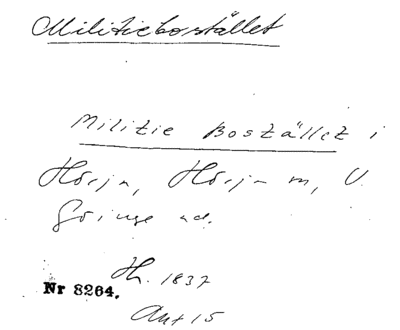 Militiebostället
Militie Bostället i
Hörja, Hörja m, V.
Göinge hd.
Hh. 1837
Nr 8264.
Akt 15